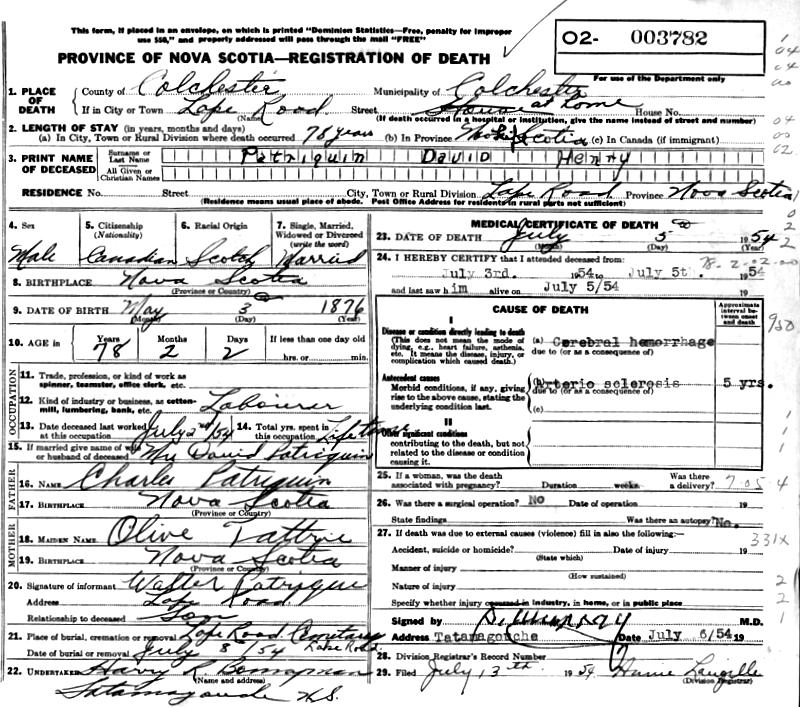 This form, if placed in an envelope, on which is printed "Dominion Statistics—Free, penalty for improper
use $50," and properly addressed will pass through the mail "FREE"
PROVINCE OF NOVA SCOTIA—REGISTRATION OF DEATH
02- 003782
For use of the Department only
1. PLACE OF DEATH
County of Colchester Municipality of Colchester
If in City or Town (Name) Street House No.
at home
(If death occurred in a hospital or institution, give the name instead of street and number)
2. LENGTH OF STAY (in years, months and days)
(a) In City, Town or Rural Division where death occurred 78 years (b) In Province Nova Scotia (c) In Canada (if immigrant)
3. PRINT NAME OF DECEASED
Surname or Last Name Patriquin David Henry
All Given or Christian Names
RESIDENCE No. Street City, Town or Rural Division Road Province Nova Scotia
(Residence means usual place of abode. Post Office Address for residents in rural parts not sufficient)
4. Sex Male
5. Citizenship (Nationality) Canadian
6. Racial Origin Scotch
7. Single, Married, Widowed or Divorced (write the word) Married
8. BIRTHPLACE Nova Scotia
(Province or Country)
9. DATE OF BIRTH May 3 1876
(Month) (Day) (Year)
10. AGE in Years 78 Months 2 Days 2 If less than one day old hrs. or min.
OCCUPATION
11. Trade, profession, or kind of work as spinner, teamster, office clerk, etc.
12. Kind of industry or business, as cotton-mill, lumbering, bank, etc. Labourer
13. Date deceased last worked at this occupation July 2nd/54 14. Total yrs. spent in this occupation Life time
15. If married give name of wife or husband of deceased Mrs David Patriquin
FATHER
16. NAME Charles Patriquin
17. BIRTHPLACE Nova Scotia
(Province or Country)
MOTHER
18. MAIDEN NAME Olive Tattrie
19. BIRTHPLACE Nova Scotia
(Province or Country)
20. Signature of informant Walter Patriquin
Address Road
Relationship to deceased Son
21. Place of burial, cremation or removal Road Cemetary
Date of burial or removal July 8/54
22. UNDERTAKER Harry R.
(Name and address)
Tatamagouche N.S.
MEDICAL CERTIFICATE OF DEATH
23. DATE OF DEATH July 5 1954
(Month) (Day) (Year)
24. I HEREBY CERTIFY that I attended deceased from:
July 3rd. 1954 to July 5th. 1954
and last saw him alive on July 5/54 19
CAUSE OF DEATH
Approximate interval between onset and death
I
Disease or condition directly leading to death
(This does not mean the mode of dying, e.g., heart failure, asthenia, etc. It means the disease, injury, or complication which caused death.)
(a) Cerebral hemorrhage
due to (or as a consequence of)
Antecedent causes
Morbid conditions, if any, giving rise to the above cause, stating the underlying condition last.
(b) Arterio sclerosis 5 yrs.
due to (or as a consequence of)
(c)
II
Other significant conditions
contributing to the death, but not related to the disease or condition causing it.
25. If a woman, was the death associated with pregnancy? Duration weeks Was there a delivery?
26. Was there a surgical operation? No Date of operation 19
State findings Was there an autopsy? No.
27. If death was due to external causes (violence) fill in also the following:—
Accident, suicide or homicide? Date of injury 19
(State which)
Manner of injury
(How sustained)
Nature of injury
331X
Specify whether injury occurred in industry, in home, or in public place
Signed by M.D.
Address Tatamagouche Date July 6/54 19
28. Division Registrar's Record Number
29. Filed July 13th 1954
(Division Registrar)